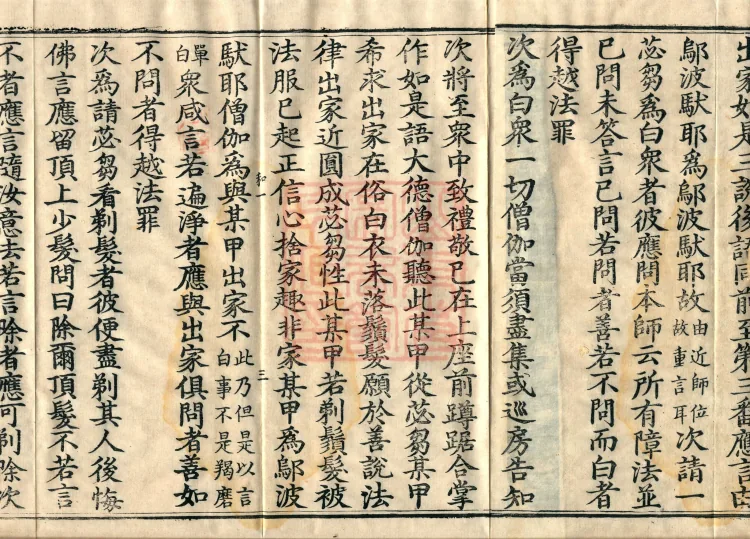 出家如是三說後語同前至第三番應言由
鄔波馱耶為鄔波馱耶故由近師位故重言耳次請一
苾芻為白眾者彼應問本師云所有障法並
已問未答言已問若問者善若不問而白者
得越法罪
次為白眾一切僧伽當須盡集或巡房告知
次將至眾中致禮敬已在上座前蹲踞合掌
作如是語大德僧伽聽此某甲從苾芻某甲
希求出家在俗白衣未落鬚髮願於善說法
律出家近圓成苾芻性此某甲若剃鬚髮被
法服已起正信心捨家趣非家某甲為鄔波
馱耶僧伽為與某甲出家不此乃但是以言白事不是羯磨
單白眾咸言若遍淨者應與出家俱問者善如
不問者得越法罪
次為請苾芻看剃髮者彼便盡剃其人後悔
佛言應留頂上少髮問曰除爾頂髮不若言
不者應言隨汝意去若言除者應可剃除次
和一
三